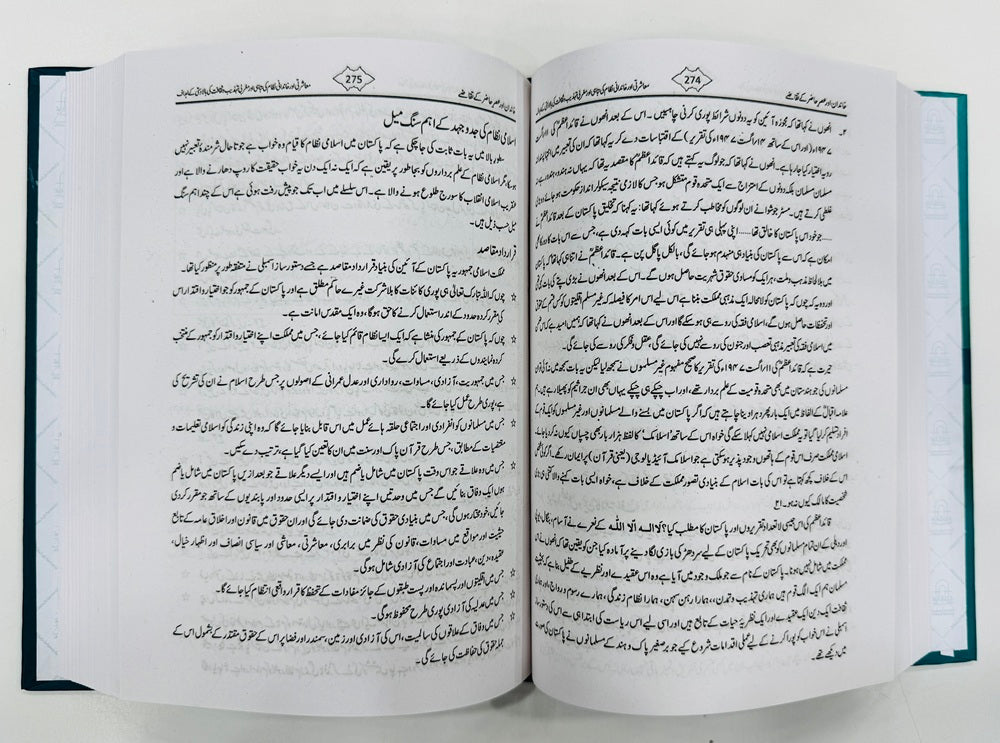 خاندان اور عصر حاضر کے تقاضے
274
معاشرتی اور خاندانی نظام کی تباہی اور مغربی تہذیب و ثقافت کی بالادستی کے اہداف
۲۔ انھوں نے کہا تھا کہ مجوزہ آئین کو یہ دونوں شرائط پوری کرنی چاہییں۔ اس کے بعد انھوں نے قائد اعظمؒ کی ۱۱ اگست
۱۹۴۷ء (اور اس کے ساتھ ۱۴ اگست ۱۹۴۷ء کی تقریر) کے اقتباسات دے کر یہ کہا تھا کہ ان کی تعبیر میں انتہا پسندانہ
رویہ اختیار کیا جا رہا ہے۔ انھوں نے کہا تھا کہ جو لوگ یہ کہتے ہیں کہ قائد اعظمؒ کا مقصد یہ تھا کہ یہاں نہ ہندو، ہندو رہے نہ
مسلمان مسلمان بلکہ دونوں کے امتزاج سے ایک متحدہ قوم متشکل ہو، جس کا لازمی نتیجہ سیکولر انداز حکومت ہو جائے وہ بڑی
غلطی کرتے ہیں۔ مسٹر جوشوا نے ان لوگوں کو مخاطب کرتے ہوئے کہا تھا: یہ کہنا کہ تخلیق پاکستان کے بعد قائد اعظمؒ نے
.....جو خود اس پاکستان کا خالق تھا..... اپنی پہلی ہی تقریر میں کوئی ایسی بات کہہ دی ہے، جس سے اس بات کا دور کا بھی
امکان ہے کہ اس سے پاکستان کی بنیاد ہی منہدم ہو جائے گی، بالکل پاگل پن ہے۔ قائد اعظمؒ نے اتنا ہی کہا تھا کہ پاکستان
میں بلا لحاظ مذہب و ملت، ہر ایک کو مساوی حقوق شہریت حاصل ہوں گے۔ اس کے بعد انھوں نے بڑی پتے کی بات کہی تھی
اور وہ یہ کہ چوں کہ پاکستان کو لامحالہ ایک مذہبی مملکت بننا ہے اس لیے اس امر کا فیصلہ کہ غیر مسلم اقلیتوں کو کس قسم کے حقوق
اور تحفظات حاصل ہوں گے، اسلامی فقہ کی رو سے ہی ہو سکے گا اور اس کے بعد انھوں نے کہا تھا کہ ہمیں امید ہے کہ اس ضمن
میں اسلامی فقہ کی تعبیر مذہبی تعصب اور جنون کی رو سے نہیں کی جائے گی، عقل و فکر کی رو سے کی جائے گی۔
حیرت ہے کہ قائد اعظمؒ کی ۱۱ اگست ۱۹۴۷ء کی تقریر کا صحیح مفہوم غیر مسلموں نے سمجھ لیا لیکن یہ بات سمجھ میں نہ آئی تو ان
مسلمانوں کی جو ہندوستان میں بھی متحدہ قومیت کے علم بردار تھے، اور اب چپکے ہی چپکے یہاں بھی ان جراثیم کو پھیلا رہے ہیں۔
علامہ اقبالؒ کے الفاظ میں ایک بار پھر دہرا دینا چاہتے ہیں کہ اگر پاکستان میں بسنے والے مسلمانوں اور غیر مسلموں کو ایک قوم کے
افراد تسلیم کر لیا گیا تو یہ مملکت اسلامی نہیں کہلا سکے گی خواہ اس کے ساتھ ’اسلامک‘ کا لفظ ہزار بار بھی چسپاں کیوں نہ کر دیا جائے۔
اسلامی مملکت صرف اس قوم کے ہاتھوں وجود پذیر ہو سکتی ہے جو اسلامک آئیڈیالوجی (یعنی قرآن) پر ایمان رکھے۔ اگر کوئی
اس کے خلاف کچھ کہتا ہے تو اس کی بات اسلام کے بنیادی تصور مملکت کے خلاف ہے، خواہ ایسی بات کہنے والا کتنی ہی بڑی
شخصیت کا مالک کیوں نہ ہو۔
قائد اعظمؒ کی اس جیسی لاتعداد تقریروں اور پاکستان کا مطلب کیا؟ لا الٰہ الا اللہ کے نعرے نے آسام، بنگال، یوپی
اور دہلی کے ان تمام مسلمانوں کو بھی تحریک پاکستان کے لیے سر دھڑ کی بازی لگا دینے پر آمادہ کیا جن کو یقین تھا کہ ان کے علاقے
مملکت میں شامل نہیں ہونا۔ پاکستان کے نام سے جو ملک وجود میں آیا ہے وہ اس عقیدے اور نظریے کے طفیل بنا ہے کہ بحیثیت
مسلمان ہم ایک الگ قوم ہیں ہماری تہذیب و تمدن، ہمارا رہن سہن، ہمارا نظام زندگی، ہمارے رسوم و رواج اور ہماری
ثقافت ایک دین، ایک عقیدے اور ایک نظریۂ حیات کے تابع ہیں اور اسی لیے اس ریاست کی ابتدا ہی سے اس کی دستور ساز
اسمبلی نے اس خواب کو پورا کرنے کے لیے عملی اقدامات شروع کیے جو برصغیر پاک و ہند کے مسلمانوں نے پاکستان کی صورت
میں دیکھے تھے۔
خاندان اور عصر حاضر کے تقاضے
275
معاشرتی اور خاندانی نظام کی تباہی اور مغربی تہذیب و ثقافت کی بالادستی کے اہداف
اسلامی نظام کی جدوجہد کے اہم سنگ میل
سطور بالا میں یہ بات ثابت کی جا چکی ہے کہ پاکستان میں اسلامی نظام کا قیام وہ خواب ہے جو تا حال شرمندۂ تعبیر نہیں
ہو سکا، مگر اسلامی نظام کے علم برداروں کو بجا طور پر یقین ہے کہ ایک نہ ایک دن یہ خواب حقیقت کا روپ دھارنے والا ہے اور
عنقریب اسلامی انقلاب کا سورج طلوع ہونے والا ہے۔ اس سلسلے میں اب تک جو پیش رفت ہوئی ہے اس کے چند اہم سنگ
میل حسب ذیل ہیں۔
قرارداد مقاصد
مملکت اسلامی جمہوریہ پاکستان کے آئین کی بنیاد قرارداد مقاصد ہے جسے دستور ساز اسمبلی نے متفقہ طور پر منظور کیا تھا۔
☆ چوں کہ اللہ تبارک تعالیٰ ہی پوری کائنات کا بلا شرکت غیرے حاکم مطلق ہے اور پاکستان کے جمہور کو جو اختیار و اقتدار اس
کی مقرر کردہ حدود کے اندر استعمال کرنے کا حق ہوگا، وہ ایک مقدس امانت ہے۔
☆ چوں کہ پاکستان کے جمہور کی منشا ہے کہ ایک ایسا نظام قائم کیا جائے، جس میں مملکت اپنے اختیار و اقتدار کو جمہور کے منتخب
کردہ نمایندوں کے ذریعے استعمال کرے گی۔
☆ جس میں جمہوریت، آزادی، مساوات، رواداری اور عدل عمرانی کے اصولوں پر جس طرح اسلام نے ان کی تشریح کی
ہے، پوری طرح عمل کیا جائے گا۔
☆ جس میں مسلمانوں کو انفرادی اور اجتماعی حلقہ ہائے عمل میں اس قابل بنایا جائے گا کہ وہ اپنی زندگی کو اسلامی تعلیمات و
مقتضیات کے مطابق، جس طرح قرآن پاک اور سنت میں ان کا تعین کیا گیا ہے، ترتیب دے سکیں۔
☆ جس میں وہ علاقے جو اس وقت پاکستان میں شامل یا ضم ہیں اور ایسے دیگر علاقے جو بعد ازیں پاکستان میں شامل یا ضم
ہوں ایک وفاق بنائیں گے جس میں وحدتیں اپنے اختیار و اقتدار پر ایسی حدود اور پابندیوں کے ساتھ جو مقرر کر دی
جائیں، خود مختار ہوں گی، جس میں بنیادی حقوق کی ضمانت دی جائے گی اور ان حقوق میں قانون اور اخلاق عامہ کے تابع
حیثیت اور مواقع میں مساوات، قانون کی نظر میں برابری، معاشرتی، معاشی اور سیاسی انصاف اور اظہار خیال،
عقیدہ، دین، عبادت اور اجتماع کی آزادی شامل ہوگی۔
☆ جس میں اقلیتوں اور پسماندہ اور پست طبقوں کے جائز مفادات کے تحفظ کا قرار واقعی انتظام کیا جائے گا۔
☆ جس میں عدلیہ کی آزادی پوری طرح محفوظ ہوگی۔
☆ جس میں وفاق کے علاقوں کی سالمیت، اس کی آزادی اور زمین، سمندر اور فضا پر اس کے حقوق مقتدر کے بشمول اس کے
جملہ حقوق کی حفاظت کی جائے گی۔